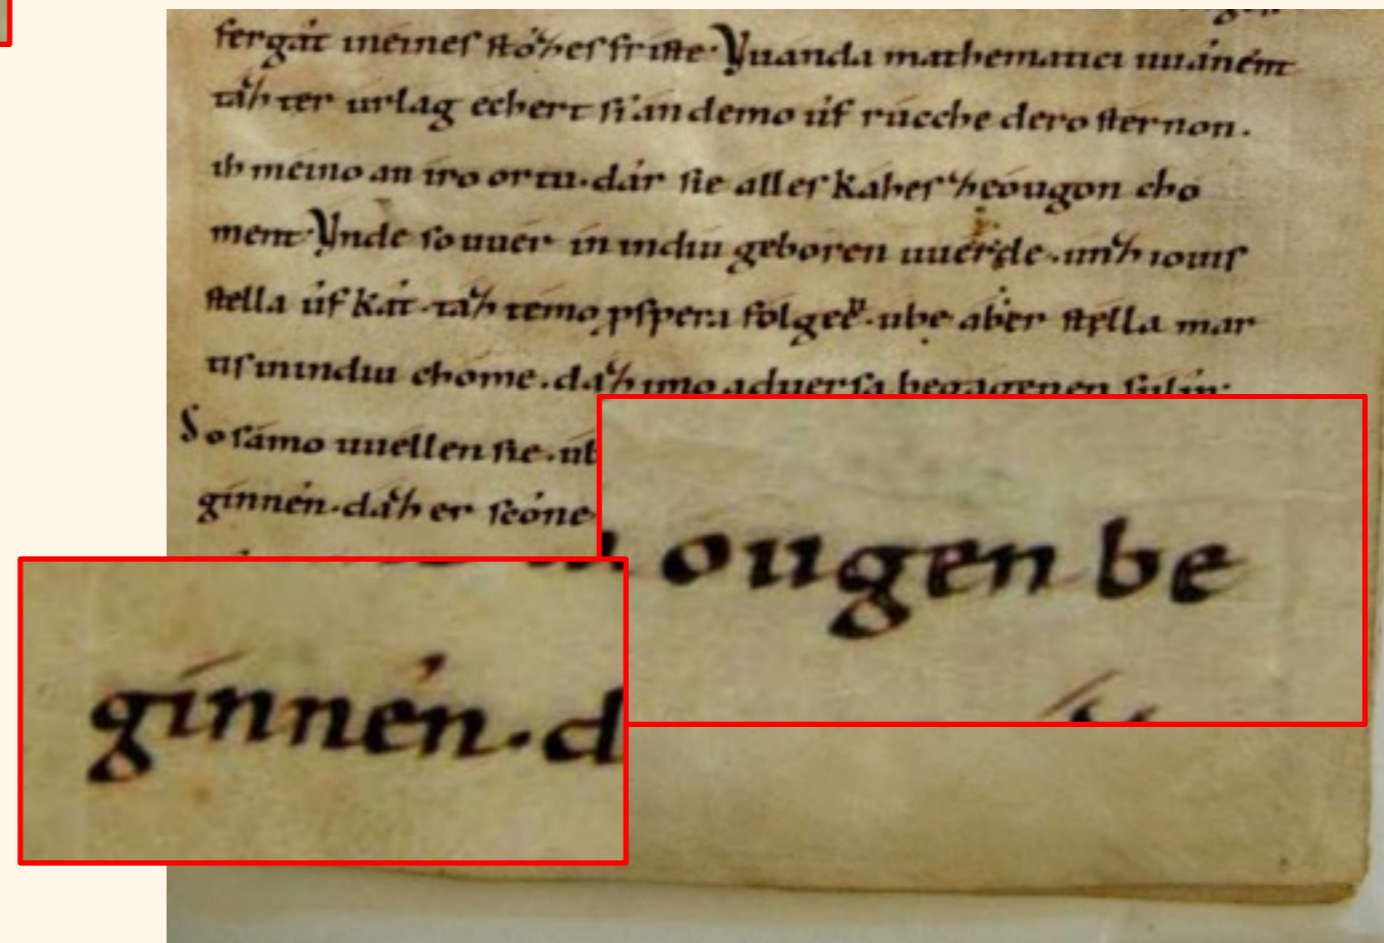 fergât meines stôzes friste·Vuanda mathematici uuânent
táz ter urlag echert sî an demo ûf rucche dero sternon.
ih méino an iro ortu·dâr sie alles káhes zeougon cho
ment·Vnde so uuer in indiu geboren uuerde·únz iouis
stella ûf kât·táz témo pspera fólgee·ube aber stella mar
tis inindiu chome·dáz imo aduersa begagenen súlin·
So sámo uuellen sie·ub
ginnén·dáz er scône
ougen be
ginnén·d